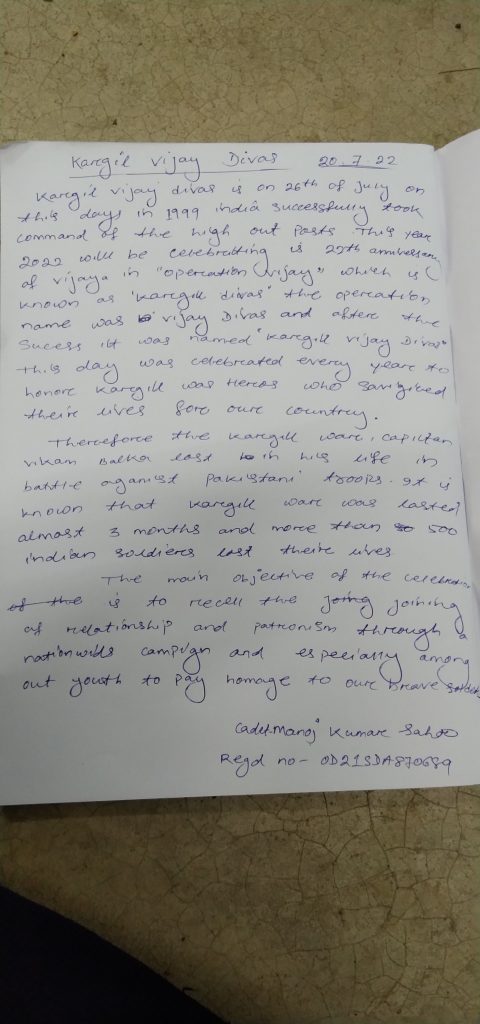 Karegil vijay Divas 20.7.22
Karegil vijay divas is on 26th of July on
this days in 1999 india successfully took
command of the high out posts. This year
2022 will be celebratting is 25th anniversary
of vijaya in "operection vijay" which is
known as 'karegill divas' the operection
name was vijay Divas and aftere the
Sucess it was named "karegill vijay Divas"
This day was celebrated every yeare to
honore karegill was Heros who sacrificed
theire lives fore oure country.
Thereefore the karegill ware, capitan
vikam Balka last in his life in
battle aganist pakistani troops. It is
known that karegill ware was lasted
almost 3 months and more than 500
indian soldieres last theire lives
The main objective of the celebration
of the is to recell the joing joining
of relationship and patronism through a
nationwids campign and especially among
out youth to pay homage to oure breave soldiers
Cadet Manoj Kumare Sahoo
Regd no - OD21SDA870689